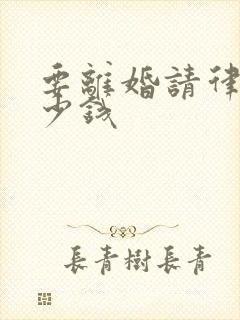 要離婚請律
少錢
長青樹長青